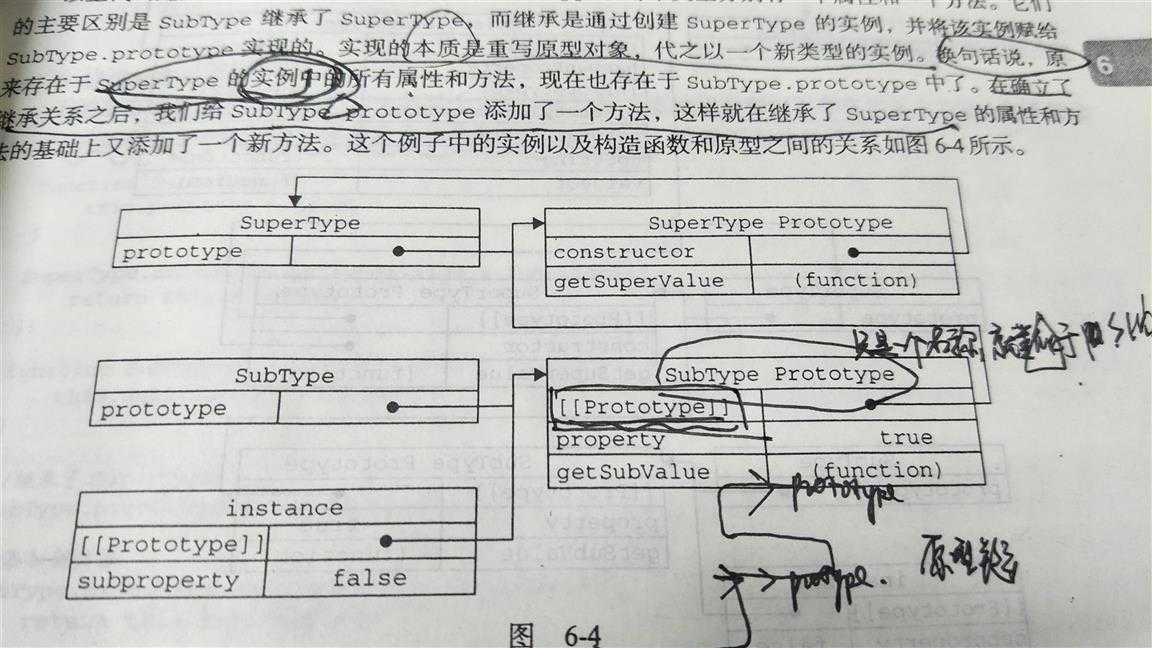 的主要区别是 SubType 继承了 SuperType，而继承是通过创建 SuperType 的实例，并将该实例赋给
SubType.prototype 实现的。实现的本质是重写原型对象，代之以一个新类型的实例。换句话说，原
来存在于 SuperType 的实例中的所有属性和方法，现在也存在于 SubType.prototype 中了。在确立了
继承关系之后，我们给 SubType.prototype 添加了一个方法，这样就在继承了 SuperType 的属性和方
法的基础上又添加了一个新方法。这个例子中的实例以及构造函数和原型之间的关系如图 6-4 所示。
6
SuperType
prototype
SuperType Prototype
constructor
getSuperValue (function)
只是一个名称,
SubType
prototype
SubType Prototype
[[Prototype]]
property true
getSubValue (function)
instance
[[Prototype]]
subproperty false
prototype
原型链
图 6-4